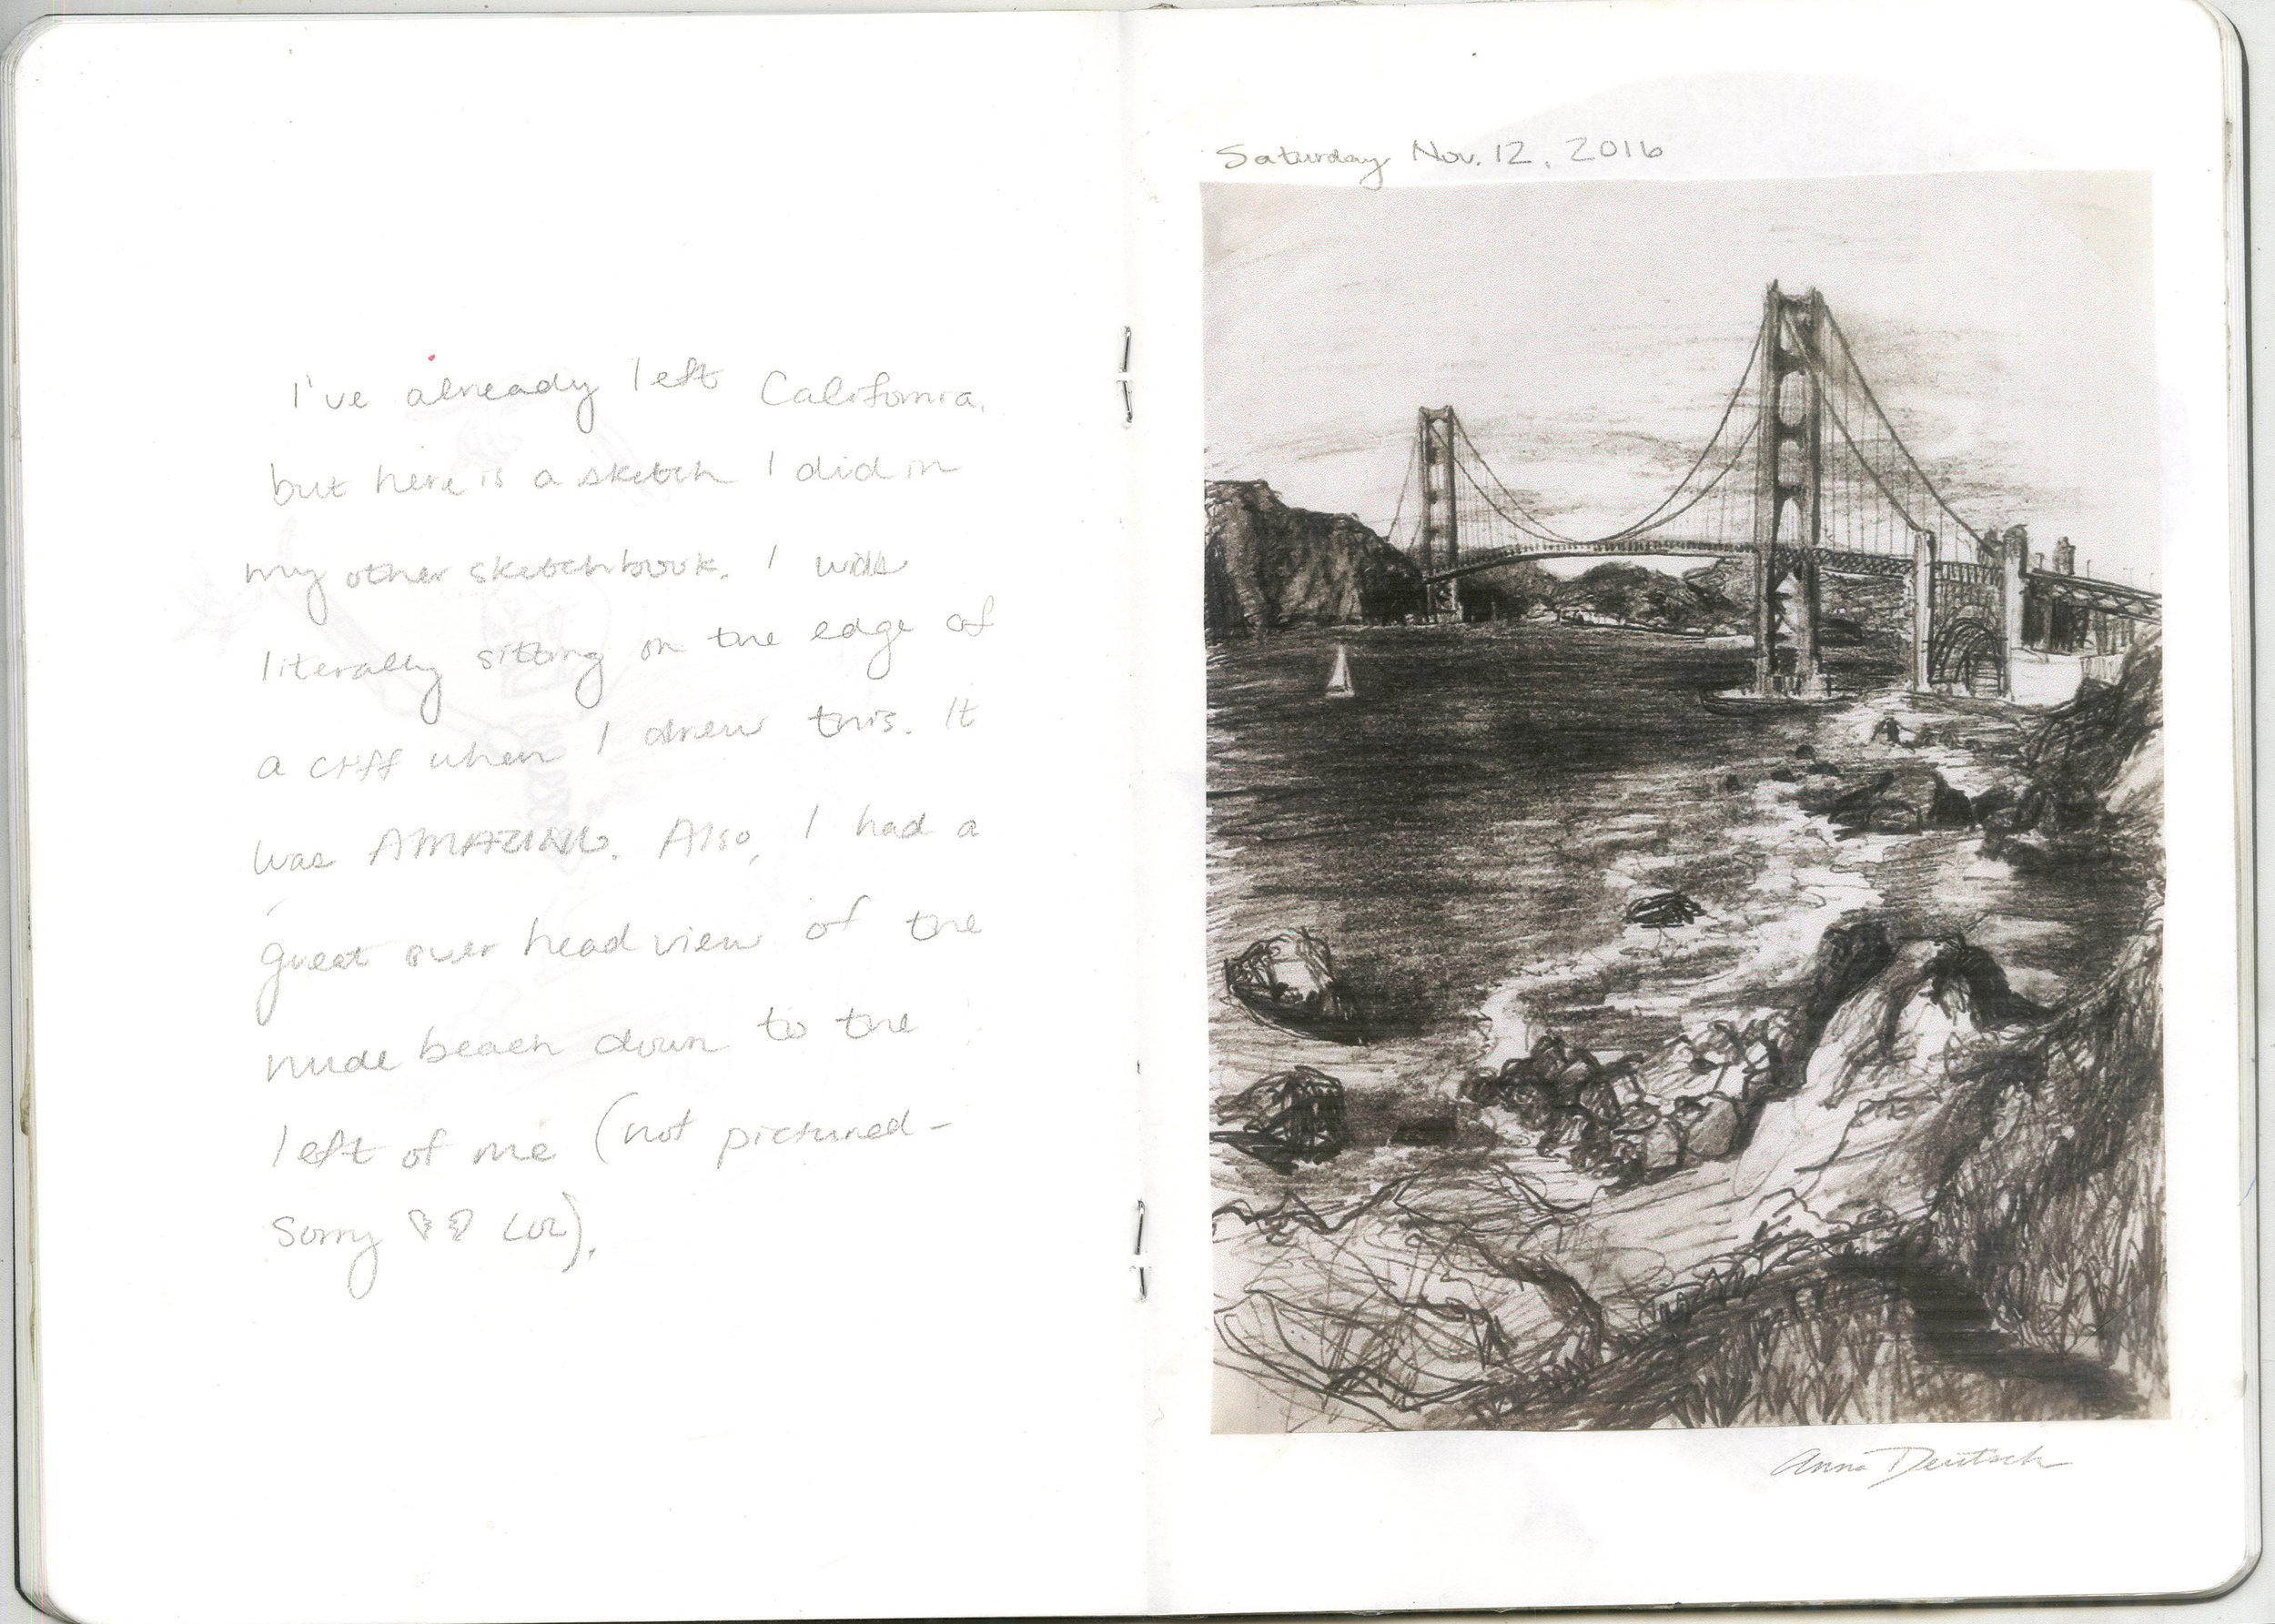 I've already left California,
but here is a sketch I did in
my other sketchbook. I was
literally sitting on the edge of
a cliff when I drew this. It
was AMAZING. Also, I had a
great over head view of the
nude beach down to the
left of me (not pictured-
sorry LOL).
Saturday Nov. 12, 2016
Anna Deutsch